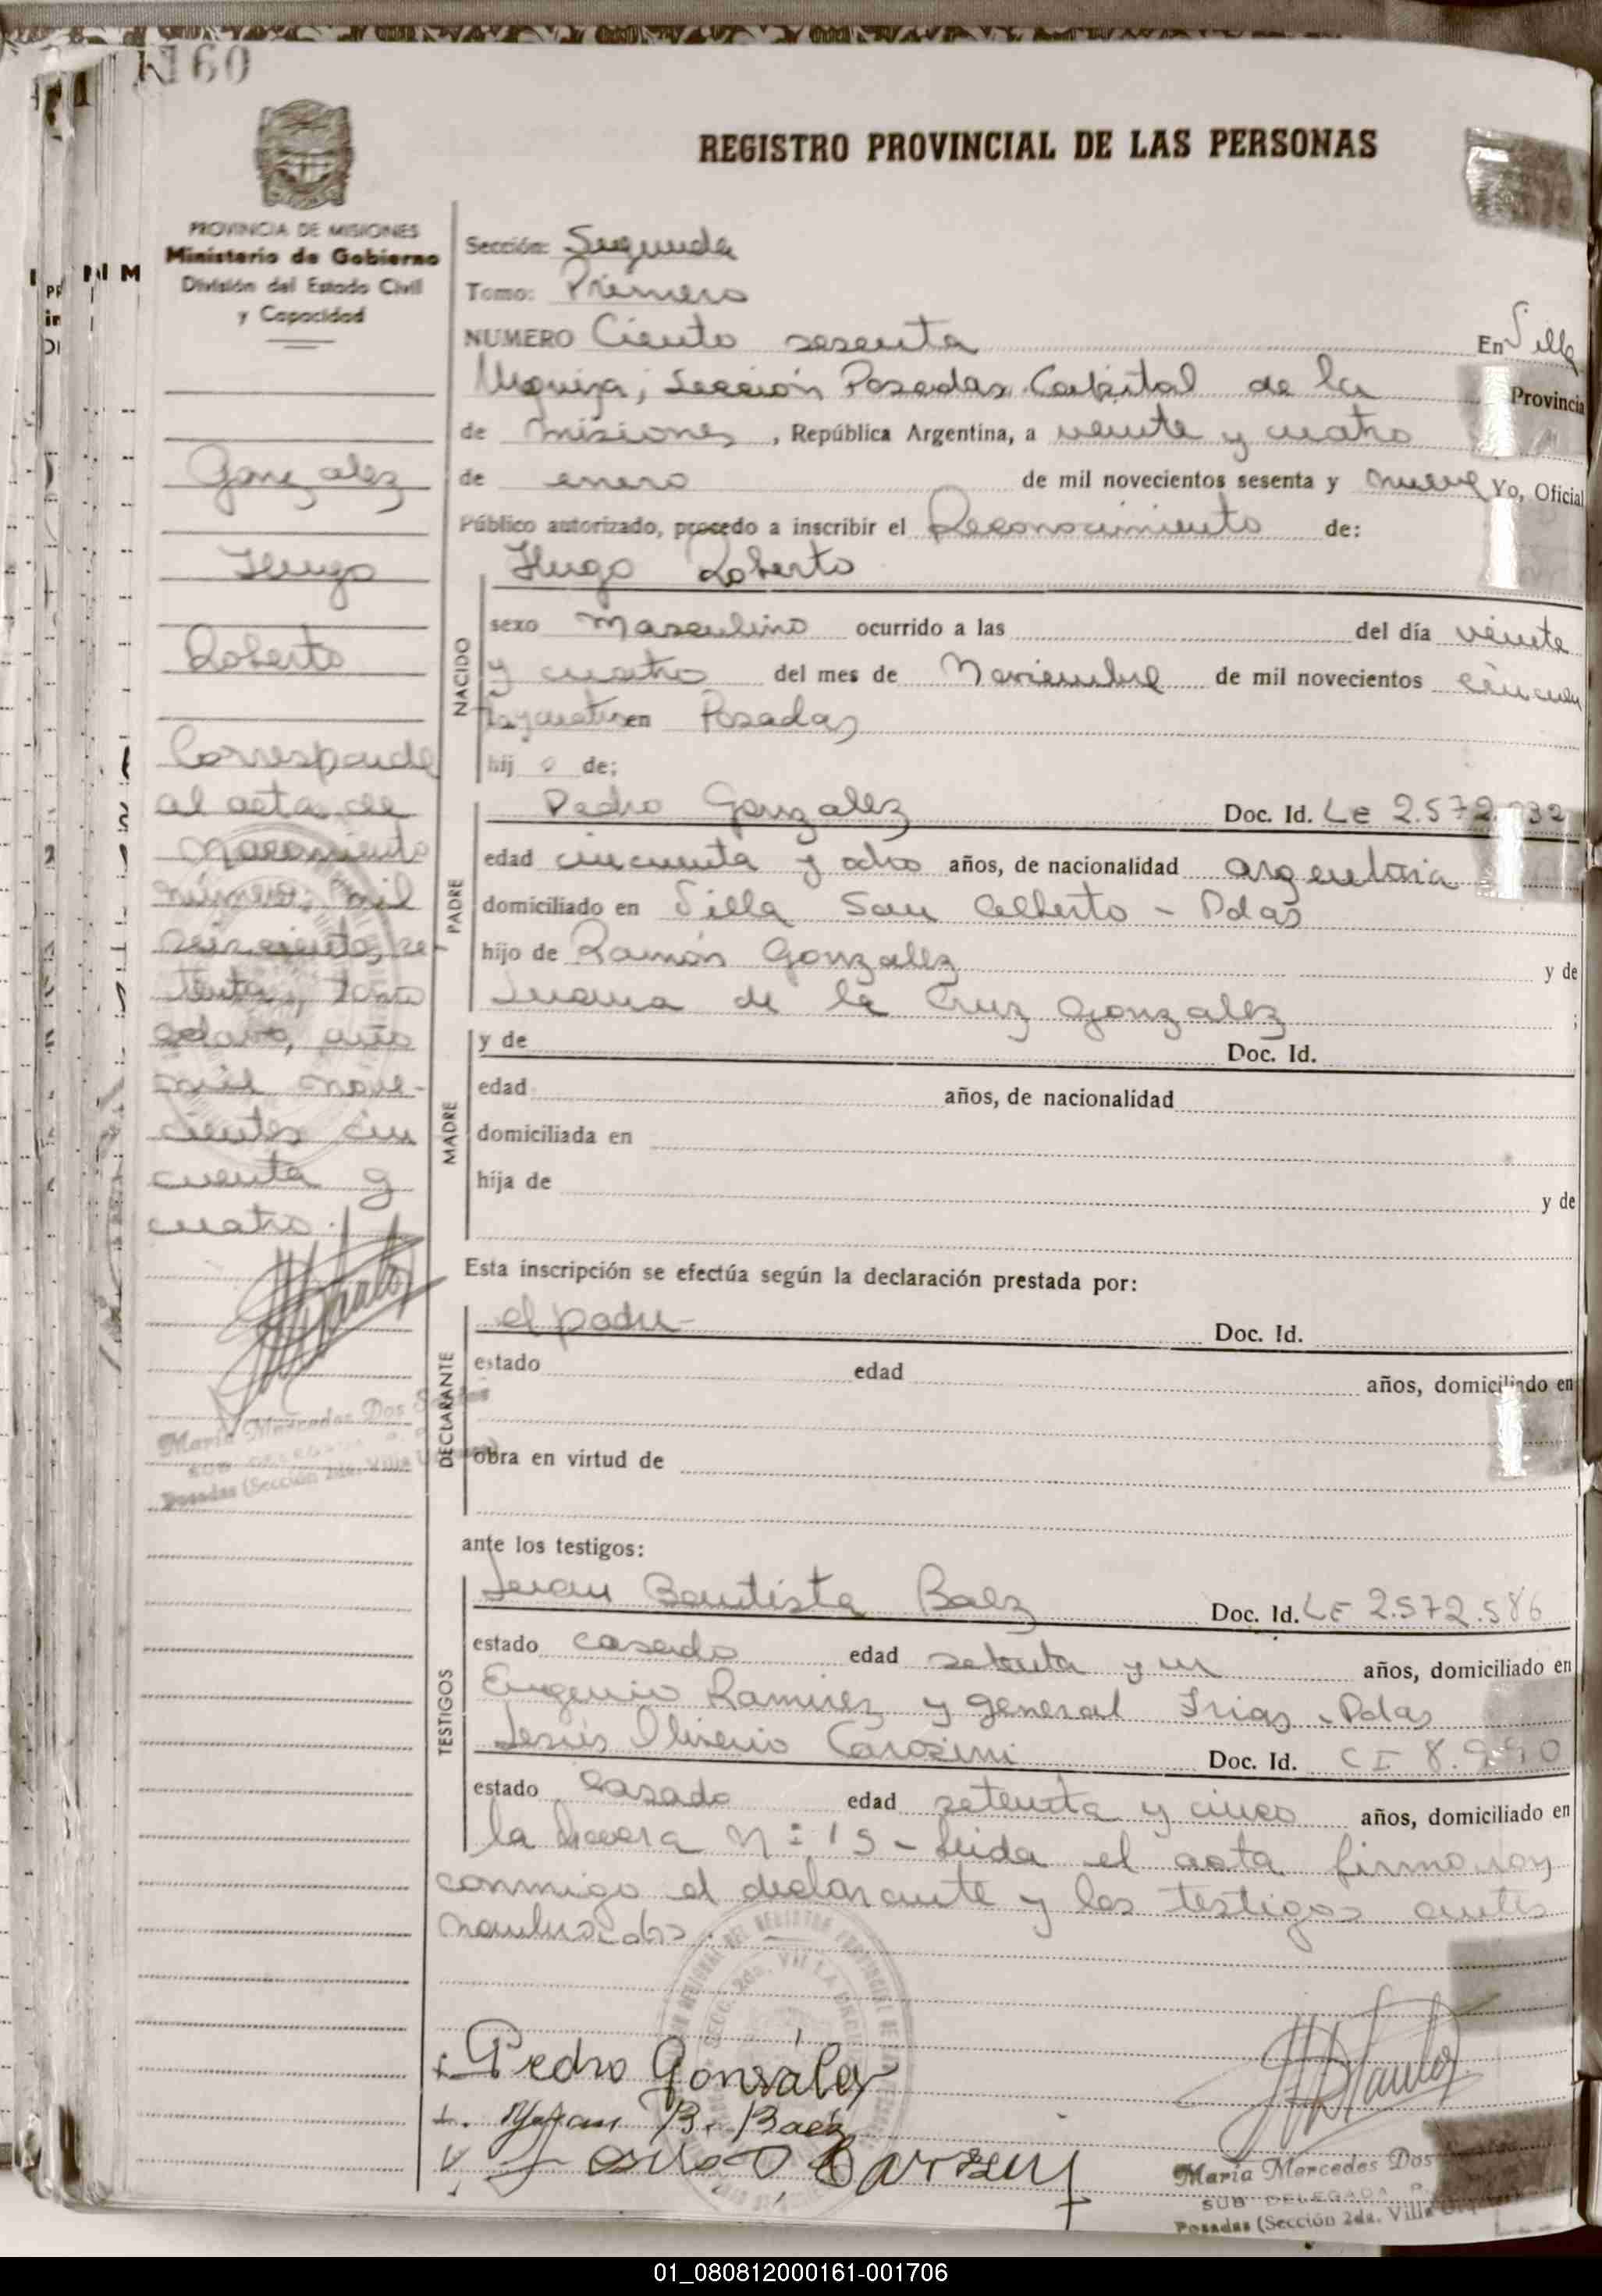 160
REGISTRO PROVINCIAL DE LAS PERSONAS
PROVINCIA DE MISIONES
Ministerio de Gobierno
División del Estado Civil
y Capacidad
Gonzalez
Hugo
Roberto
Corresponde
al acta de
Nacimiento
número: mil
seiscientos se-
tenta, tomo
octavo, año
mil nove-
cientos cin
cuenta y
cuatro.
Maria Mercedes Dos
SUB DELEGADA
Posadas (Sección 2da. Villa
Sección: Segunda
Tomo: Primero
NUMERO Ciento sesenta En Villa
Urquiza, Sección Posadas Capital de la Provincia
de Misiones, República Argentina, a veinte y cuatro
de enero de mil novecientos sesenta y nueve Yo, Oficial
Público autorizado, procedo a inscribir el Reconocimiento de:
Hugo Roberto
NACIDO
sexo Masculino ocurrido a las del día veinte
y cuatro del mes de Noviembre de mil novecientos cincuen
ta y cuatro en Posadas
hij o de;
PADRE
Pedro Gonzalez Doc. Id. LE 2.572. 32
edad cincuenta y ocho años, de nacionalidad argentina
domiciliado en Villa San Alberto - Pdas
hijo de Ramón Gonzalez y de
Juana de la Cruz Gonzalez ;
MADRE
y de Doc. Id.
edad años, de nacionalidad
domiciliada en
hija de y de
Esta inscripción se efectúa según la declaración prestada por:
DECLARANTE
el padre - Doc. Id.
estado edad años, domiciliado en
obra en virtud de
ante los testigos:
TESTIGOS
Juan Bautista Baez Doc. Id. LE 2.572.586
estado casado edad setenta y un años, domiciliado en
Eugenio Ramirez y general Frias - Pdas
Jesús Carozini Doc. Id. CI 8.990
estado Casado edad setenta y cinco años, domiciliado en
la N° 15 - Leida el acta firmaron
conmigo el declarante y los testigos antes
nombrados.
Pedro Gonsalez
Juan B. Baez
Maria Mercedes Dos
SUB DELEGADA
Posadas (Sección 2da. Villa
01_080812000161-001706